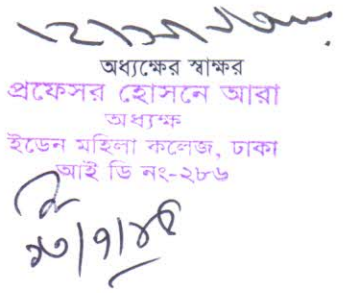 অধ্যক্ষের স্বাক্ষর
প্রফেসর হোসনে আরা
অধ্যক্ষ
ইডেন মহিলা কলেজ, ঢাকা
আই ডি নং-২৮৬